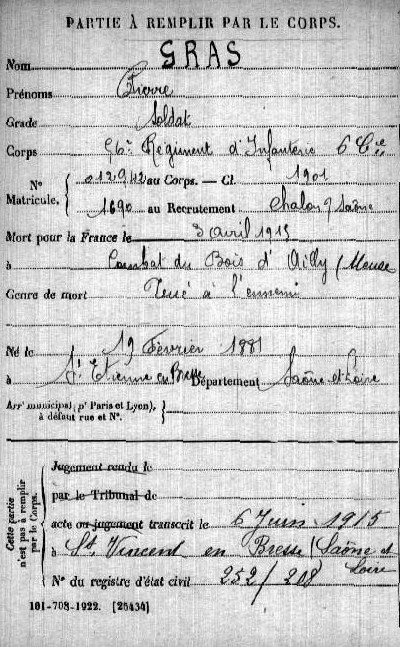 PARTIE À REMPLIR PAR LE CORPS.
Nom GRAS
Prénoms Pierre
Grade Soldat
Corps 56e Régiment d'Infanterie 6 Cie
N° Matricule. 012942 au Corps. — Cl. 1901
1690 au Recrutement Chalon s/ Saône
Mort pour la France le 5 avril 1915
à Combat du Bois d'Ailly (Meuse
Genre de mort Tué à l'ennemi
Né le 19 Février 1881
à St Etienne en Bresse Département Saône et Loire
Arr' municipal (p' Paris et Lyon), à défaut rue et N°.
Cette partie n'est pas à remplir par le Corps.
Jugement rendu le
par le Tribunal de
acte ou jugement transcrit le 6 Juin 1915
à St Vincent en Bresse (Saône et Loire
N° du registre d'état civil 252/208
101-708-1922. [26434]